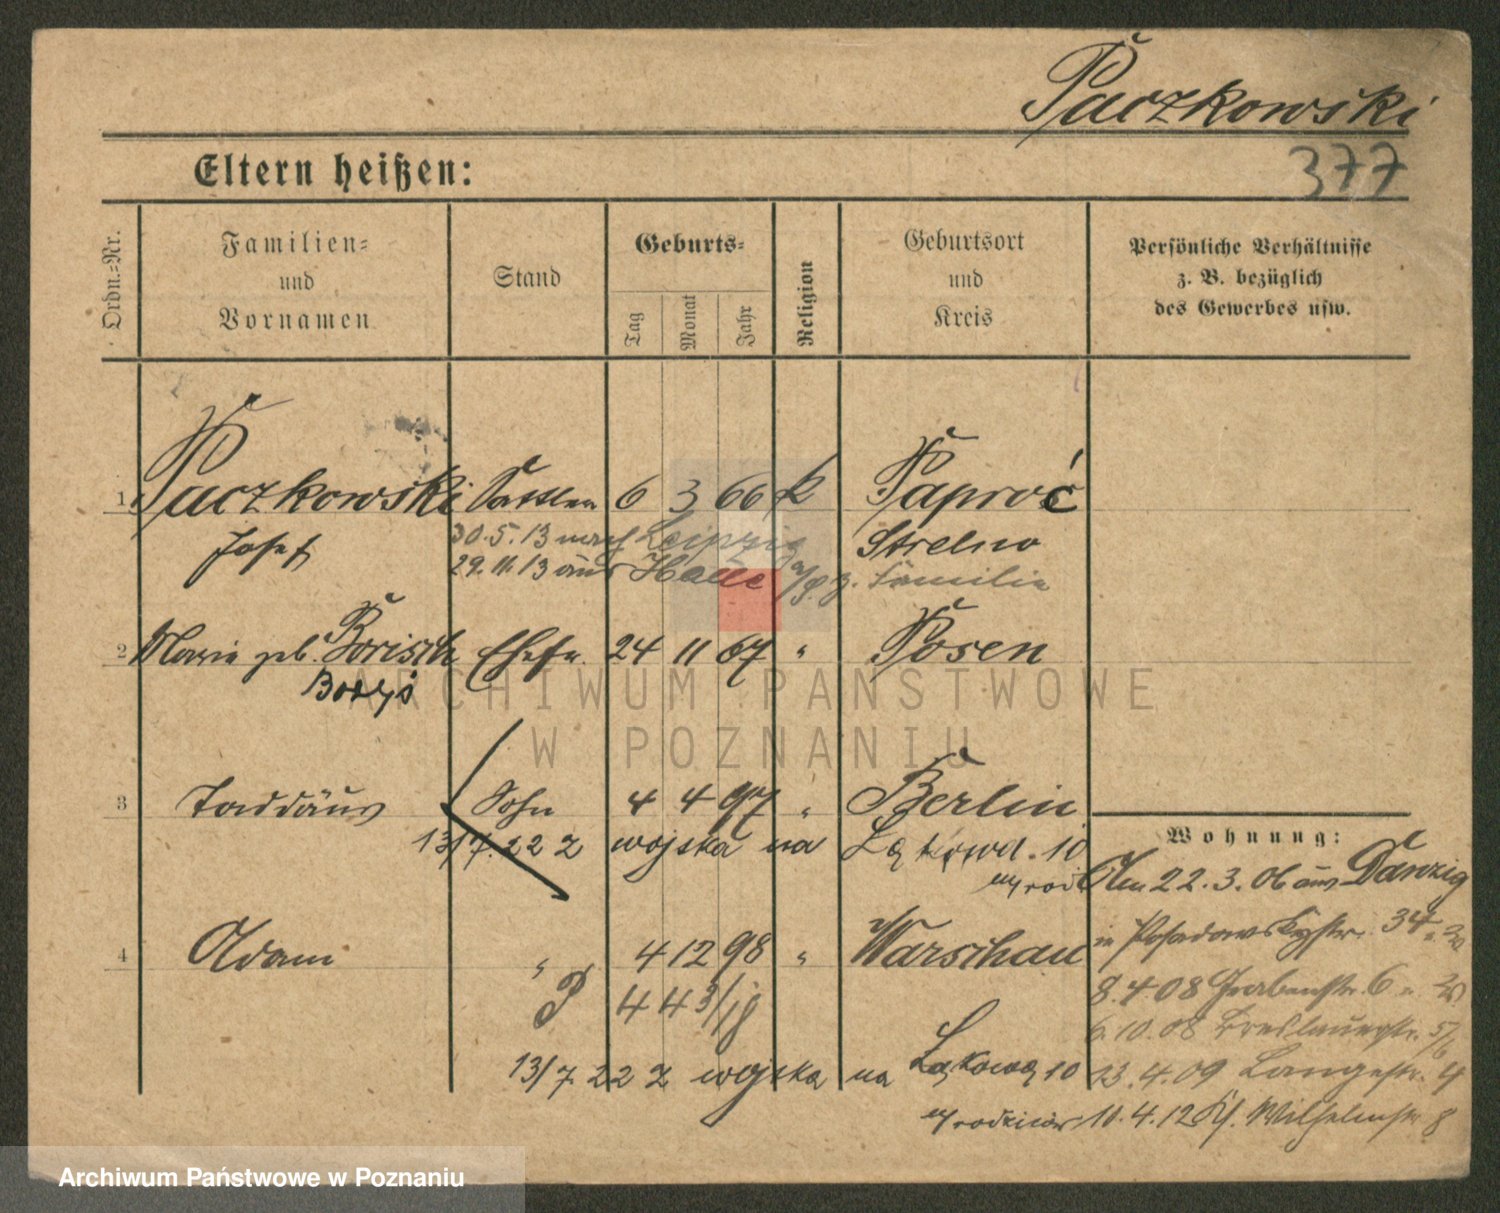 Paczkowski
377
Eltern heißen:
Ordn.-Nr.
Familien-
und
Vornamen
Stand
Geburts-
Tag
Monat
Jahr
Religion
Geburtsort
und
Kreis
Persönliche Verhältnisse
z. B. bezüglich
des Gewerbes usw.
1 Paczkowski Sattler 6 3 66 k Paproć
Josef 30.5.13 nach Leipzig Strelno
29.11.13 aus Halle Familie
2 Marie geb. Borisch Ehefr. 24 11 67 " Posen
Borys
ARCHIWUM PAŃSTWOWE
W POZNANIU
3 Taddäus Sohn 4 4 97 " Berlin
Wohnung:
13/7.22 z wojska na Łąkowa 10
Am 22.3.06 aus Danzig
4 Adam " 4 12 98 " Warschau
in Posadowskystr. 34
P 4 4 3/jg
8.4.08 Grabenstr. 6
6.10.08 Breslauerstr. 5/6
13/7.22 z wojska na Łąkowa 10
23.4.09 Langestr. 4
10.4.12 Kl. Wilhelmstr. 8
Archiwum Państwowe w Poznaniu